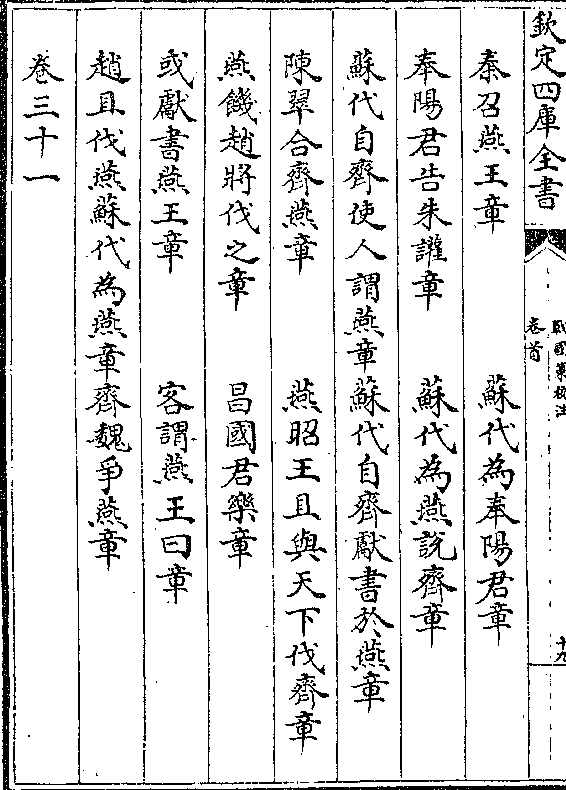 欽定四庫全書
戰國策校注
卷首
十九
秦召燕王章 蘇代為奉陽君章
奉陽君告朱讙章 蘇代為燕説齊章
蘇代自齊使人謂燕章蘇代自齊獻書於燕章
陳翠合齊燕章 燕昭王且與天下伐齊章
燕饑趙將伐之章 昌國君樂章
或獻書燕王章 客謂燕王曰章
趙且伐燕蘇代為燕章齊魏爭燕章
卷三十一